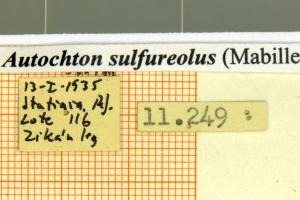 Autochton sulfureolus (Mabille
13-I-1935
Itatiaia, RJ.
Lote 116
Zikán leg
11.249